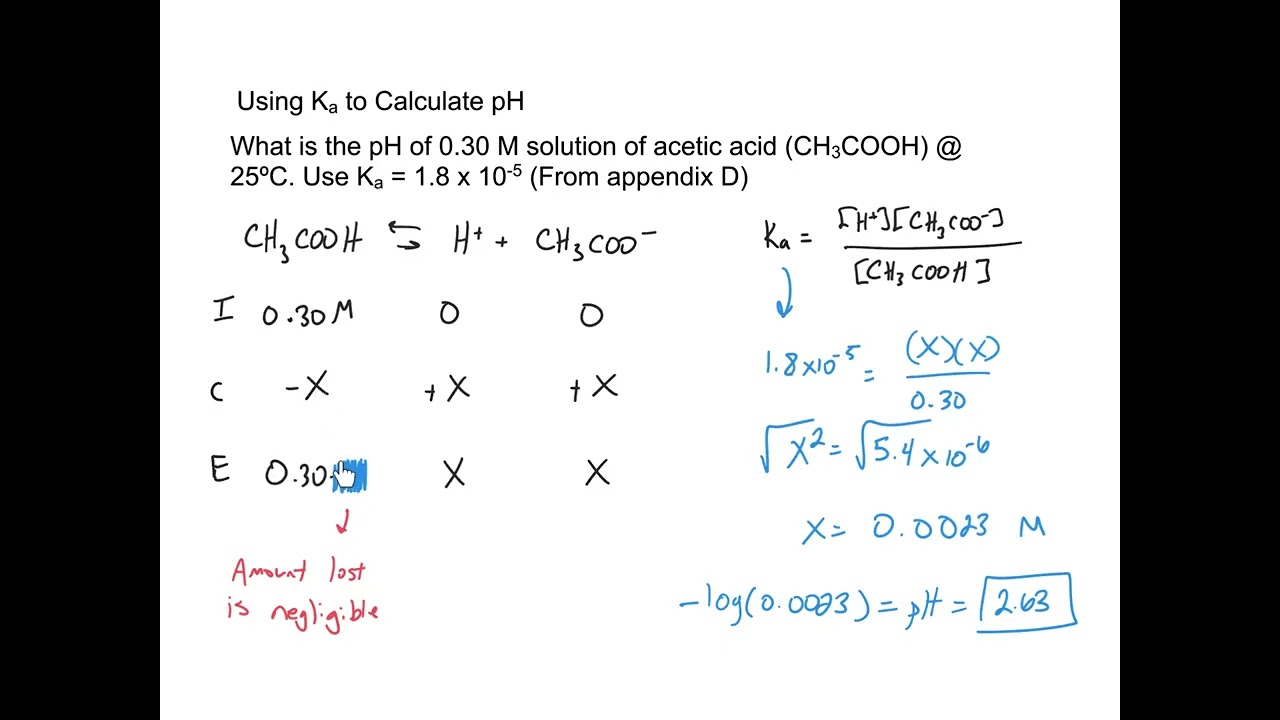 Using Kₐ to Calculate pH
What is the pH of 0.30 M solution of acetic acid (CH₃COOH) @
25ºC. Use Kₐ = 1.8 x 10⁻⁵ (From appendix D)
CH₃COOH ⇆ H⁺ + CH₃COO⁻
I 0.30 M 0 0
C -X +X +X
E 0.30 X X
Amount lost
is negligible
Kₐ = [H⁺][CH₃COO⁻]
[CH₃COOH]
1.8x10⁻⁵ = (X)(X)
0.30
√X² = √5.4x10⁻⁶
X = 0.0023 M
-log(0.0023) = pH = 2.63